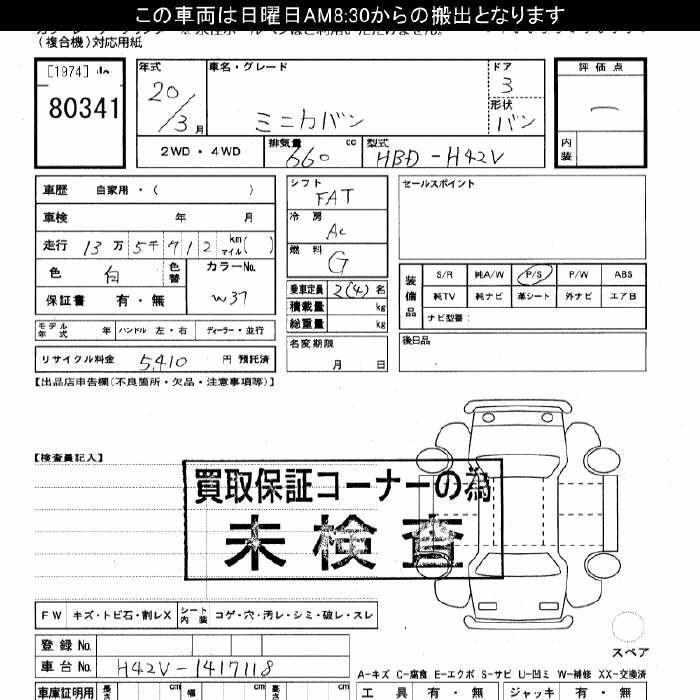 この車両は日曜日AM8:30からの搬出となります
(複合機)対応用紙
[1974]
80341
年式 20/3月
車名・グレード ミニカバン
ドア 3
形状 バン
評価点 ー
内装
2WD・4WD
排気量 660 cc
型式 HBD-H42V
車歴 自家用・( )
車検 年 月
走行 13万5千912 km マイル( )
色 白 色替
カラーNo. W37
保証書 有・無
モデル年式 年 ハンドル 左・右 ディーラー・並行
リサイクル料金 5,410 円 預託済
シフト FAT
冷房 AC
燃料 G
乗車定員 2(4) 名
積載量 kg
総重量 kg
名変期限 月 日
セールスポイント
装備品
S/R 純A/W P/S P/W ABS
純TV 純ナビ 革シート 外ナビ エアB
ナビ型番:
後日品
【出品店申告欄(不良箇所・欠品・注意事項等)】
【検査員記入】
買取保証コーナーの為
未検査
FW キズ・トビ石・割レX シート内装 コゲ・穴・汚レ・シミ・破レ・スレ
スペア
登録No.
車台No. H42V-1417118
A-キズ C-腐食 E-エクボ S-サビ U-凹ミ W-補修 XX-交換済
車庫証明用 長さ cm 幅 cm 高さ cm
工具 有・無 ジャッキ 有・無